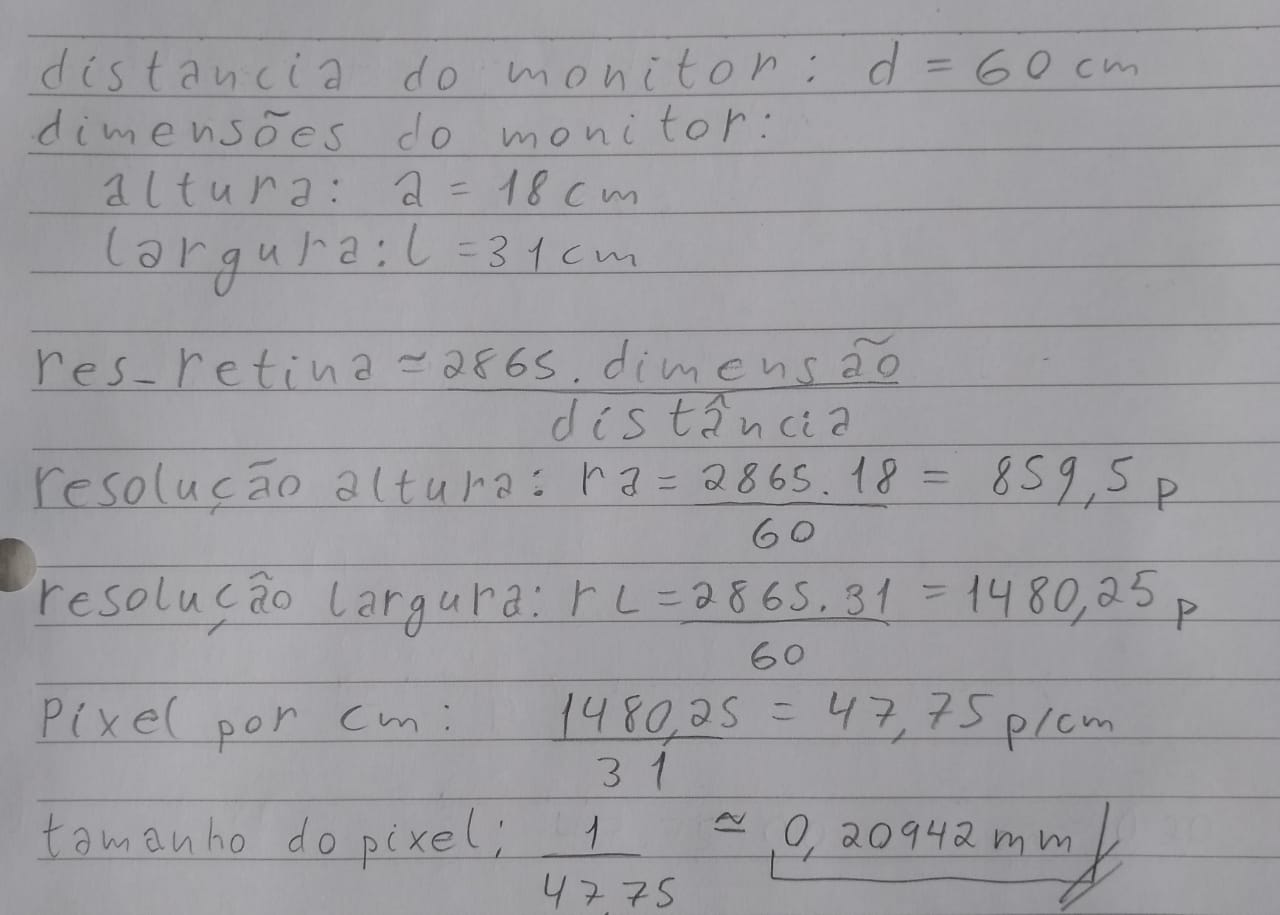 distancia do monitor: d = 60 cm
dimensões do monitor:
altura: a = 18 cm
largura: l = 31 cm
res_retina ≃ 2865 . dimensão
distância
resolução altura: ra = 2865 . 18 = 859,5 p
60
resolução largura: rL = 2865 . 31 = 1480,25 p
60
Pixel por cm: 1480,25 = 47,75 p/cm
31
tamanho do pixel: 1 ≃ 0,20942 mm
47,75